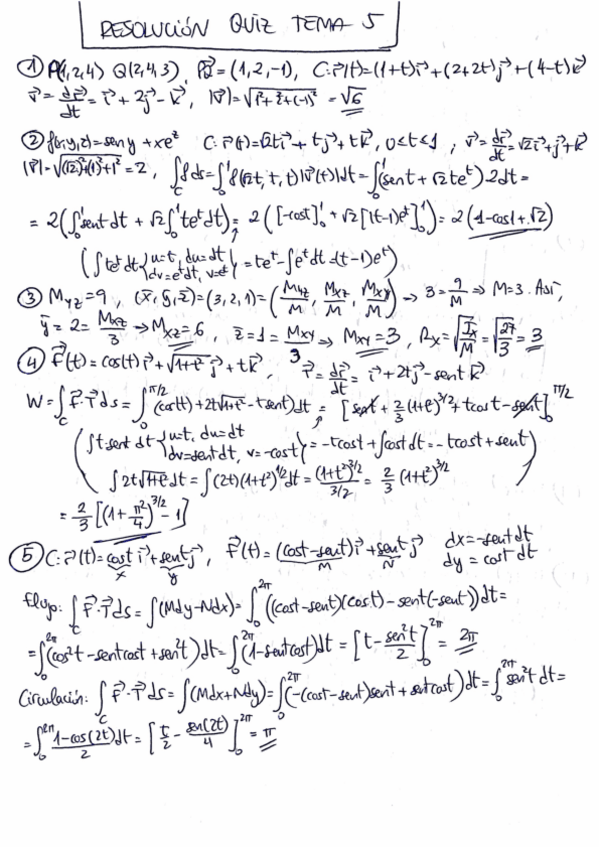 RESOLUCIÓN QUIZ TEMA 5
① P(1,2,4) Q(2,4,3), PQ⃗ = (1,2,-1), C: r⃗(t)=(1+t)i⃗+(2+2t)j⃗+(4-t)k⃗
v⃗ = dr⃗/dt = i⃗ + 2j⃗ - k⃗, |v⃗| = √(1²+2²+(-1)²) = √6
② f(x,y,z)=sen y + xe^z C: r⃗(t)=√2ti⃗ + tj⃗ + tk⃗, 0≤t≤1, v⃗=dr⃗/dt=√2i⃗+j⃗+k⃗
|v⃗|=√((√2)²+(1)²+1²)=2, ∫_C fds=∫₀¹f(√2t,t,t)|v⃗(t)|dt=∫₀¹(sent+√2te^t)2dt=
= 2(∫₀¹sent dt + √2∫₀¹te^t dt) = 2([-cost]₀¹+√2[(t-1)e^t]₀¹) = 2(1-cos1+√2)
(∫te^t dt {u=t, du=dt dv=e^t dt, v=e^t} = te^t-∫e^t dt=(t-1)e^t)
③ M_yz=9, (x̄,ȳ,z̄)=(3,2,1)=(M_yz/M, M_xz/M, M_xy/M) → 3=9/M ⇒ M=3. Así,
ȳ=2=M_xz/3 → M_xz=6, z̄=1=M_xy/3 → M_xy=3, R_x=√(I_x/M)=√(27/3)=3
④ F⃗(t)=cos(t)i⃗+√(1+t²)j⃗+tk⃗, T⃗=dr⃗/dt=i⃗+2tj⃗-sent k⃗
W=∫_C F⃗·T⃗ds=∫₀^(π/2)(cos(t)+2t√(1+t²)-tsent)dt=[sent+2/3(1+t²)^(3/2)+tcost-sent]₀^(π/2)
(∫t·sent dt {u=t, du=dt dv=sent dt, v=-cost} = -tcost+∫cost dt=-tcost+sent
∫2t√(1+t²)dt=∫(2t)(1+t²)^(1/2)dt=(1+t²)^(3/2)/(3/2)=2/3(1+t²)^(3/2))
=2/3[(1+π²/4)^(3/2)-1]
⑤ C: r⃗(t)=cost i⃗+sent j⃗, F⃗(t)=(cost-sent)i⃗+sent j⃗ dx=-sent dt
x y M N dy=cost dt
Flujo: ∫_C F⃗·T⃗ds=∫(Mdy-Ndx)=∫₀^(2π)((cost-sent)(cost)-sent(-sent))dt=
=∫₀^(2π)(cos²t-sentcost+sen²t)dt=∫₀^(2π)(1-sentcost)dt=[t-sen²t/2]₀^(2π)=2π
Circulación: ∫_C F⃗·T⃗ds=∫(Mdx+Ndy)=∫₀^(2π)(-(cost-sent)sent+sentcost)dt=∫₀^(2π)sen²t dt=
=∫₀^(2π)(1-cos(2t))/2 dt=[t/2-sen(2t)/4]₀^(2π)=π